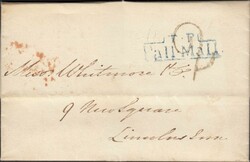 T.P
Pall Mall
Messrs Whitmore & Co
9 New Square
Lincolns Inn.